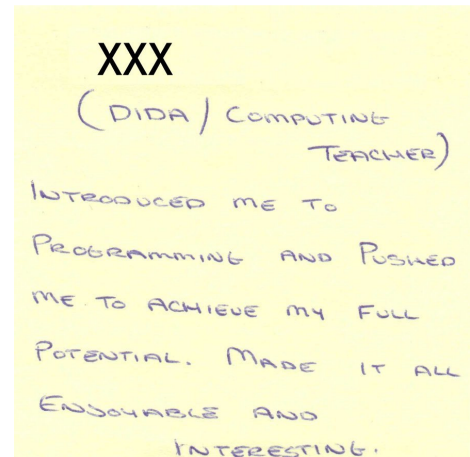 XXX
(DIDA/COMPUTING
TEACHER)
INTRODUCED ME TO
PROGRAMMING AND PUSHED
ME TO ACHIEVE MY FULL
POTENTIAL. MADE IT ALL
ENJOYABLE AND
INTERESTING.